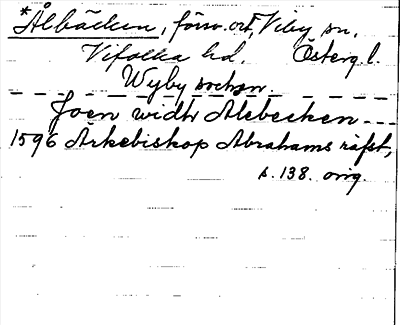 *Ålbäcken, försv. ort, Viby sn,
Vifolka hd. Österg. l.
Wyby sochn.
Joen widh Alebecken ---
1596 Ärkebiskop Abrahams räfst,
s. 138. orig.